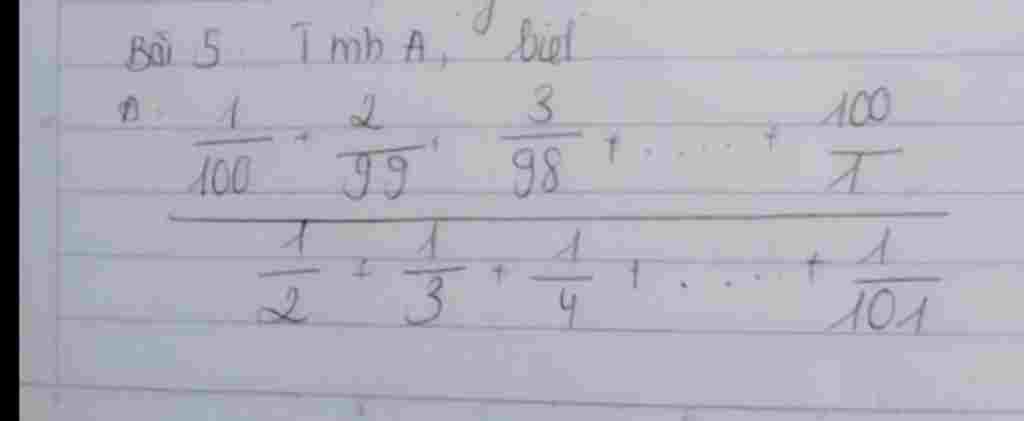 Bài 5 Tính A, biết
A = 1/100 + 2/99 + 3/98 + . . . . + 100/1
1/2 + 1/3 + 1/4 + . . . . + 1/101